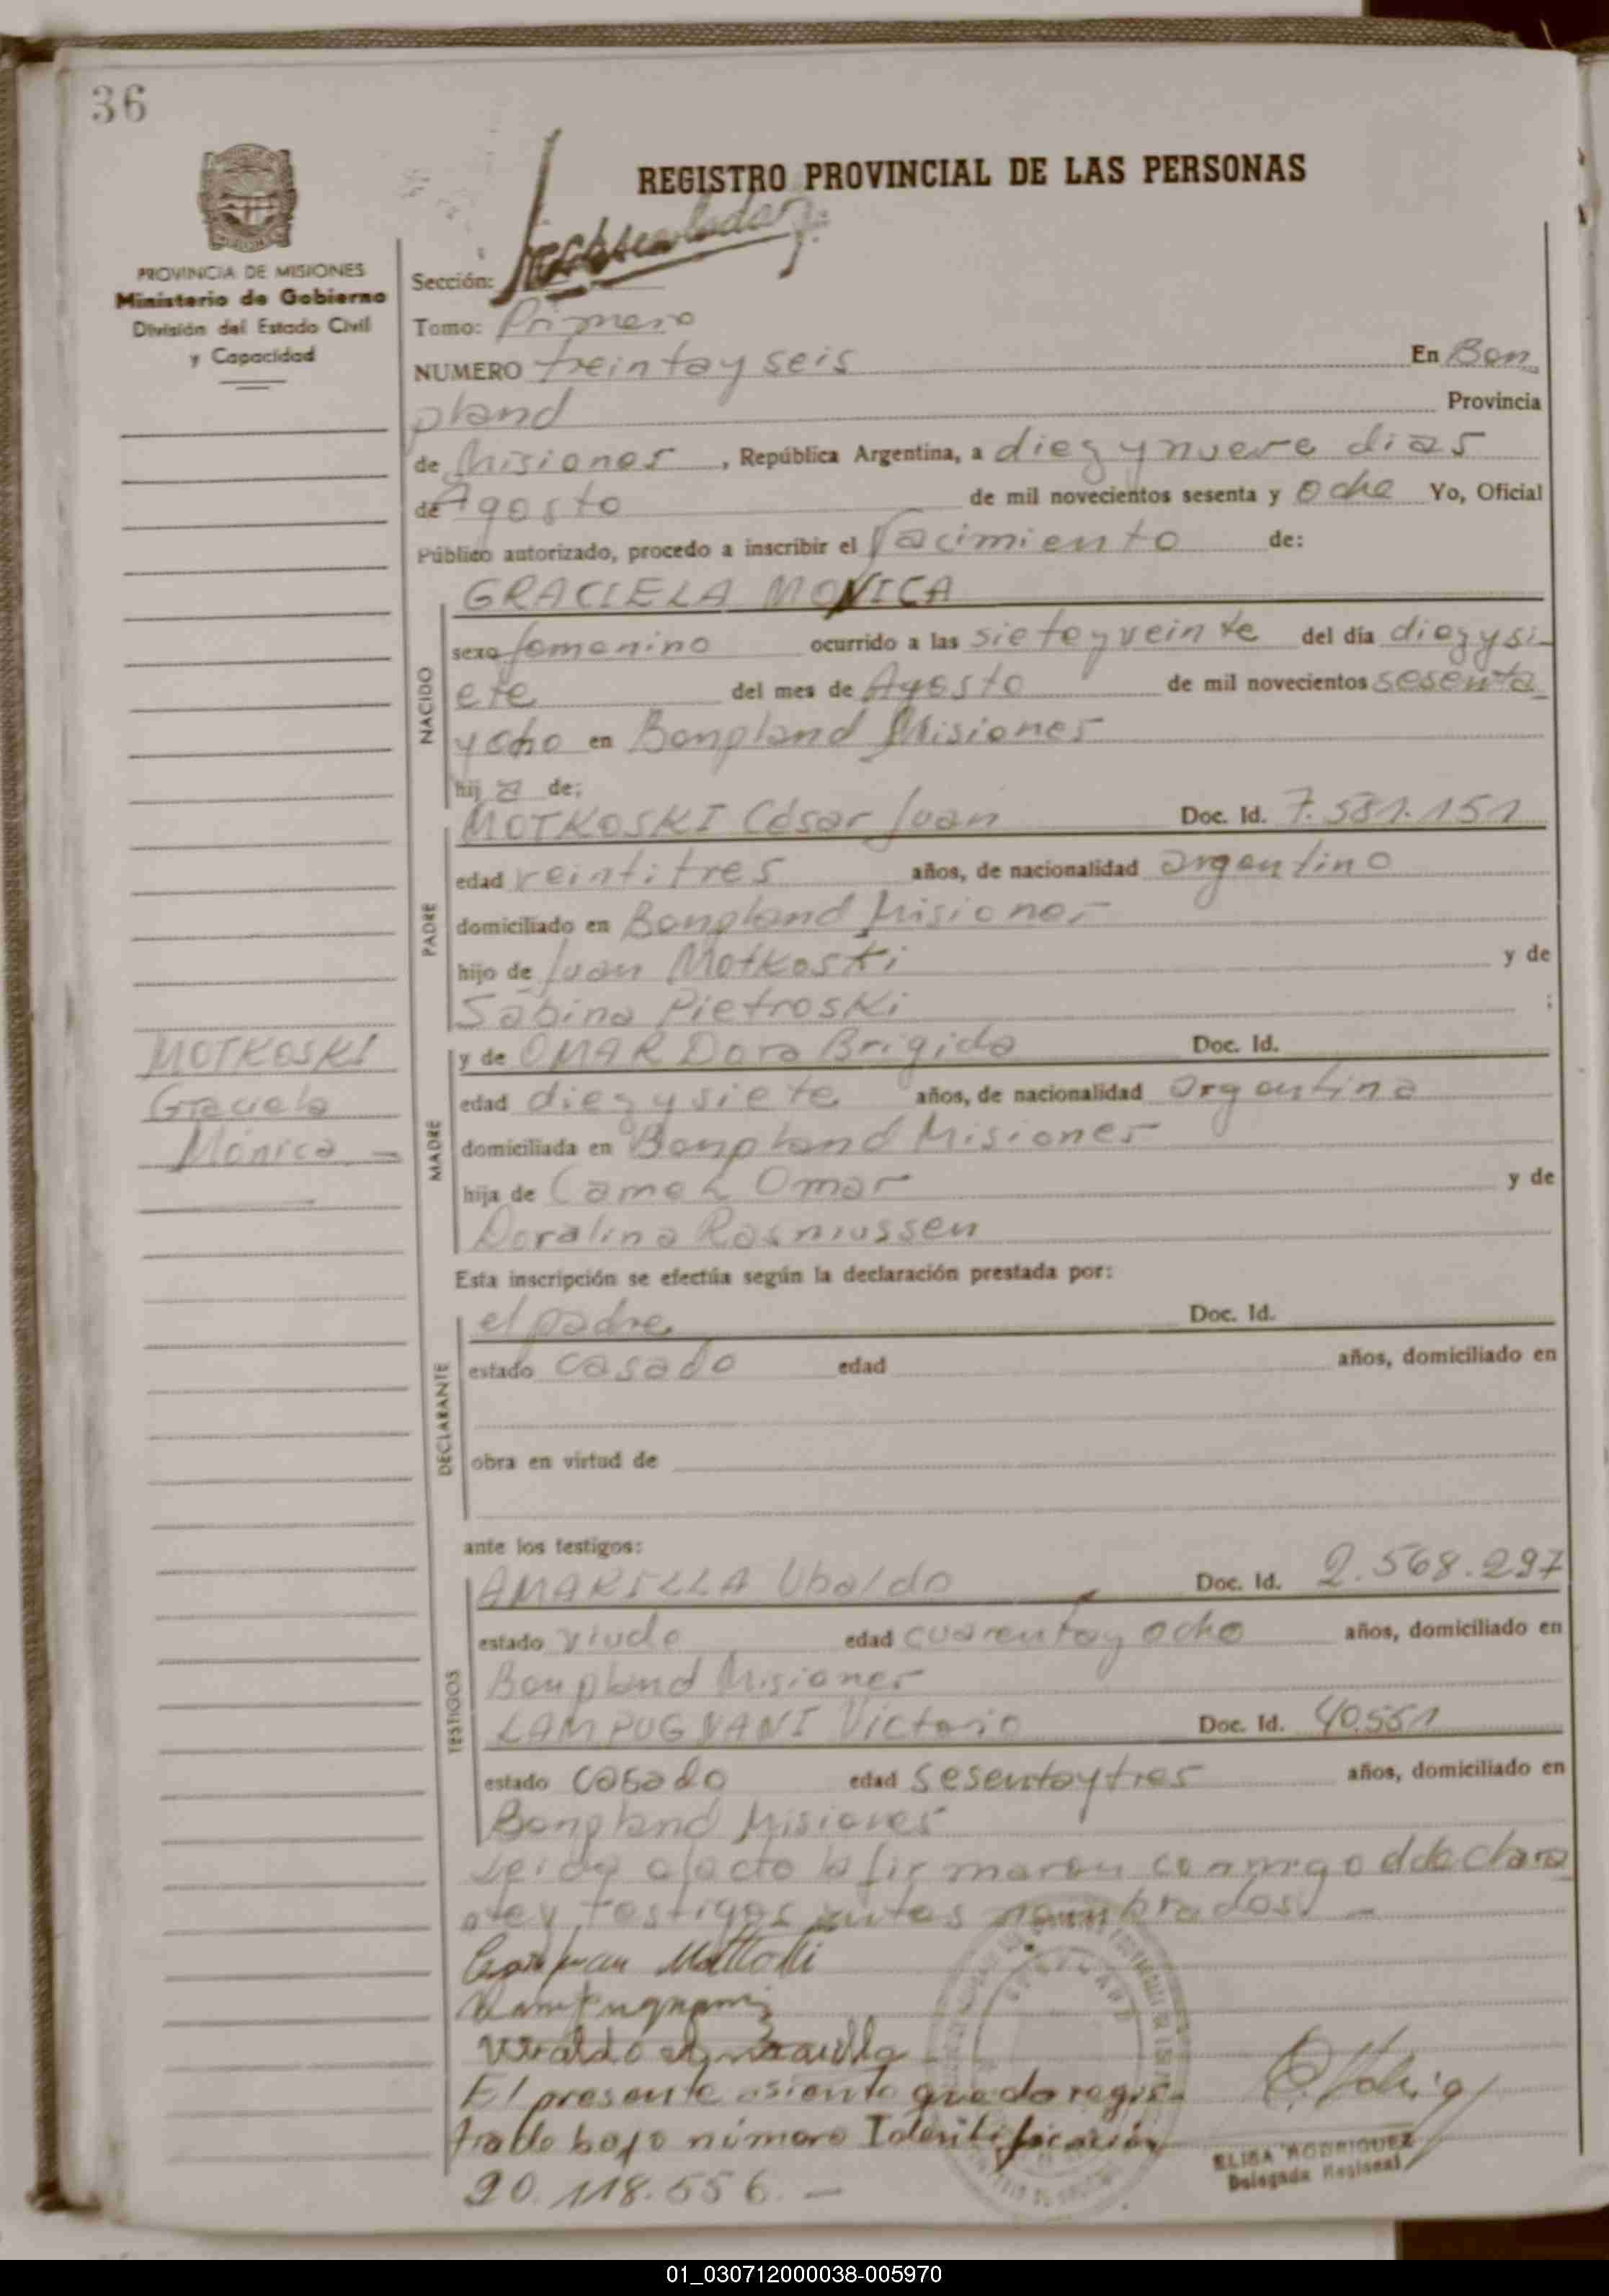 36
REGISTRO PROVINCIAL DE LAS PERSONAS
PROVINCIA DE MISIONES
Ministerio de Gobierno
División del Estado Civil
y Capacidad
Sección:
Tomo: Primero
NUMERO treinta y seis En Bon
pland Provincia
de Misiones, República Argentina, a diez y nueve dias
de Agosto de mil novecientos sesenta y ocho Yo, Oficial
Público autorizado, procedo a inscribir el Nacimiento de:
GRACIELA MONICA
NACIDO
sexo femenino ocurrido a las siete y veinte del día diez y si-
ete del mes de Agosto de mil novecientos sesenta
y ocho en Bonpland Misiones
hija de:
PADRE
MOTKOSKI César Juan Doc. Id. 7.581.151
edad veintitres años, de nacionalidad argentino
domiciliado en Bonpland Misiones
hijo de Juan Motkoski y de
Sabina Pietroski ;
MADRE
y de OMAR Dora Brigida Doc. Id.
edad diez y siete años, de nacionalidad argentina
domiciliada en Bonpland Misiones
hija de Omar y de
Doralina Rasmussen
MOTKOSKI
Graciela
Mónica —
Esta inscripción se efectúa según la declaración prestada por:
DECLARANTE
el padre Doc. Id.
estado casado edad años, domiciliado en
obra en virtud de
ante los testigos:
TESTIGOS
AMARILLA Ubaldo Doc. Id. 2.568.297
estado viudo edad cuarenta y ocho años, domiciliado en
Bonpland Misiones
LAMPUGNANI Victorio Doc. Id. 40.551
estado casado edad sesenta y tres años, domiciliado en
Bonpland Misiones
Leida el acto la firmaron conmigo el declara
nte y testigos antes nombrados. —
Juan Motkoski
Lampugnani
Ubaldo Amarilla
El presente asiento queda regis-
trado bajo número Identificación
20.118.556. —
ELISA RODRIGUEZ
Delegada Regional
01_030712000038-005970